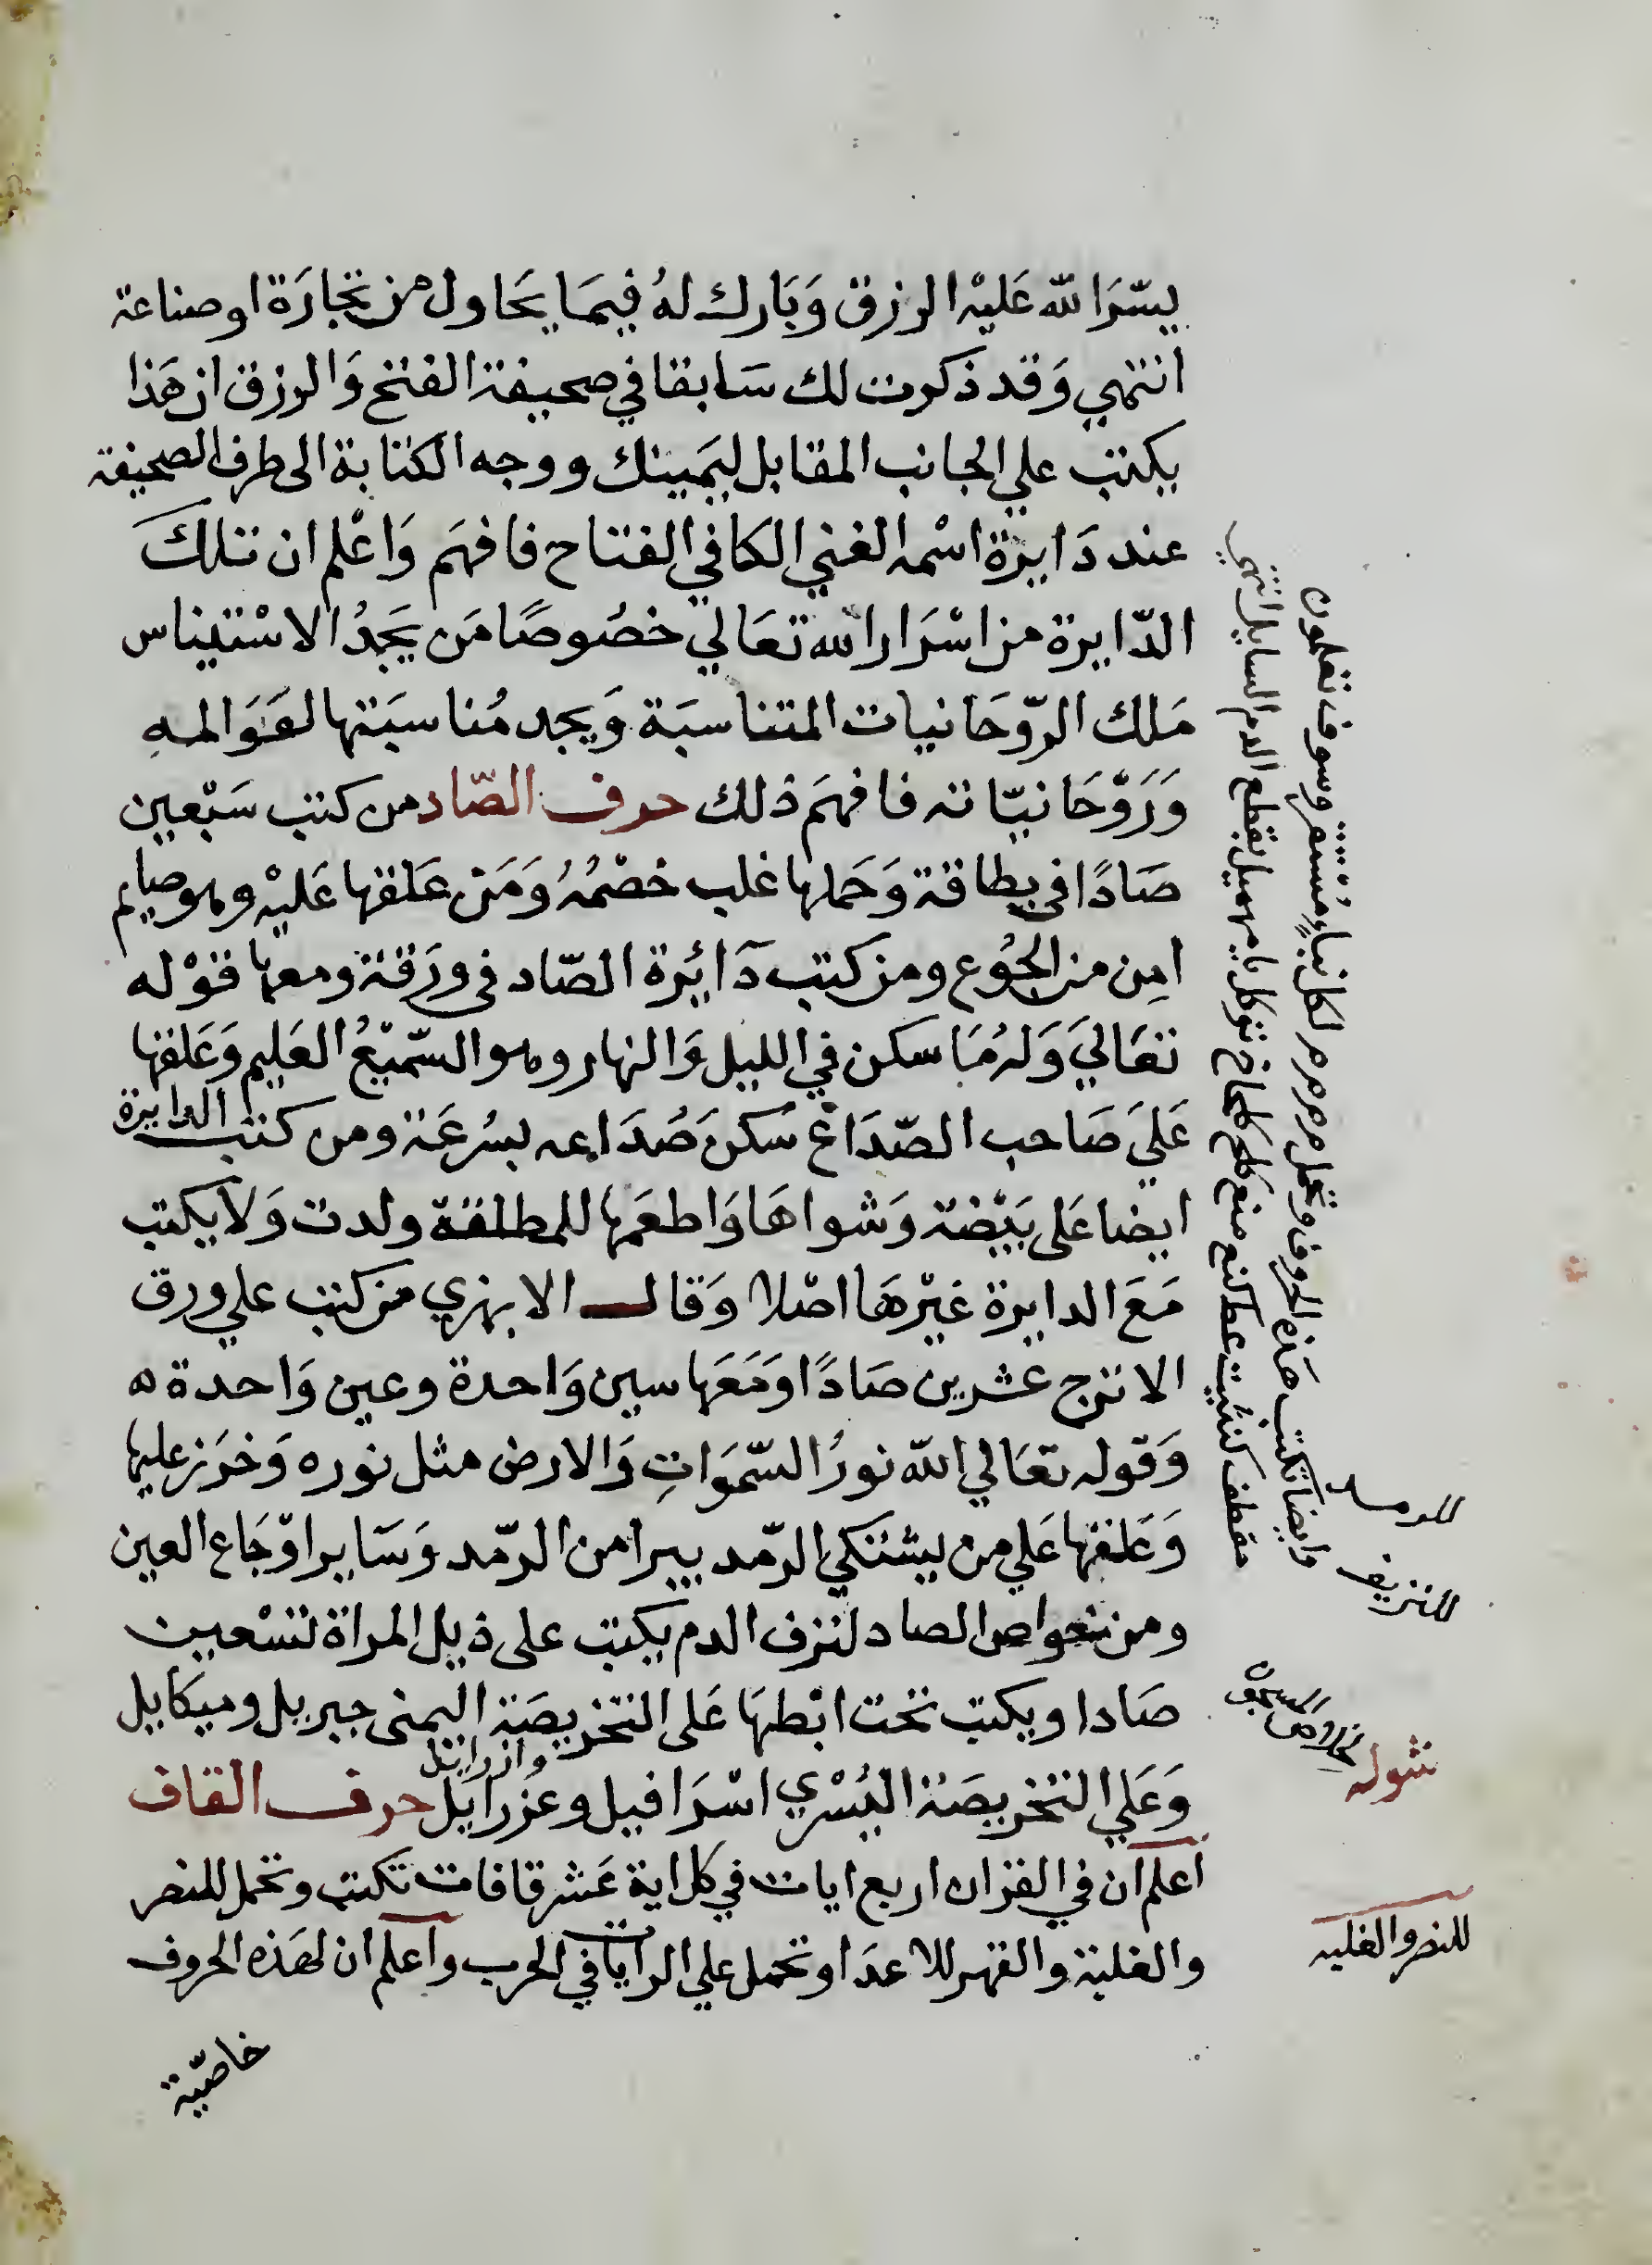 يسّرَ الله عَليْه الرزق وَبَارك لهُ فيمَا يحَاول من تجارَة او صناعة
انتهي وَقد ذكرت لك سَابقا في صحيفة الفتح وَالرزق ان هَذا
يكتب علي الجانب المقابل ليَمينك ووجه الكتابة الى طرف الصحيفة
عند دَايرَة اسْمه الغني الكافي الفتاح فافهَم وَاعْلم ان تلكَ
الدّايرة من اسْرَار الله تعَالي خصُوصًا مَن يَجدُ الاسْتيناس
مَلك الرّوحَانيات المتناسبَة وَيجد مُناسبَتها لعَوَالمهِ
وَرَوْحَانيّاته فافهَم ذلك حرف الصّاد من كتب سَبْعين
صَادًا في بطاقة وَحَملها غلب خصْمُهُ وَمَن عَلقها عَليْه وهو صايم
امِن من الجُوع ومن كتب دَائرة الصّاد في ورَقة ومعها قوْله
تعَاليَ وَلهُ مَا سكن في الليل وَالنهار وهو السّميْعُ العَليم وَعَلقها
عَليَ صَاحب الصّدَاعْ سَكنَ صُدَاعه بسُرعَة ومن كتب الدايرة
ايضا عَلى بَيْضة وَشواهَا وَاطعَمها للمطلقة ولدت وَلا يكتب
مَعَ الدايرة غيْرهَا اصْلا وَقال الابهري من كتب علي ورق
الاترج عشرين صَادًا وَمَعَها سين وَاحدة وعين وَاحدة ه
وَقوله تعَالي الله نورُ السّموَاتِ وَالارض مثل نوره وَخرَز عليها
وَعَلقها عَلي من يشتكي الرّمد يبرا من الرّمد وَسَاير اوْجَاع العين
ومن خواص الصاد لنزف الدم يكتب على ذيل المراة تسْعين
صَادا ويكتب تحت ابْطهَا عَلى التخريصَة اليمنى جبريل وميكايل
وازراييل
وَعَلي التخريصَة اليُسْري اسْرَافيل وعزرَايل حرف القاف
اعلم ان في القران اربع ايات في كل اية عَشر قافات تكتب وتحمل للنصر
والغلبة والقهر للاعدَا وتحمل علي الرايات في الحرب واعلم ان لهَذه الحروف
خاصّية
للرمد
للنزيف
وايضا تكتب هَذه الحروف وتحمل لكل نباءٍ مُستقر وسوف تعلمون
الدم السايل انتهي
خلاص المسجون
للنصر والغلبه